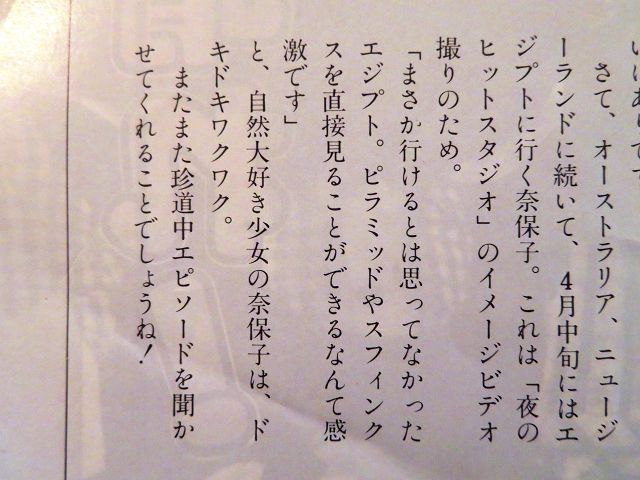 さて、オーストラリア、ニュージ
ーランドに続いて、4月中旬にはエ
ジプトに行く奈保子。これは「夜の
ヒットスタジオ」のイメージビデオ
撮りのため。
「まさか行けるとは思ってなかった
エジプト。ピラミッドやスフィンク
スを直接見ることができるなんて感
激です」
と、自然大好き少女の奈保子は、ド
キドキワクワク。
またまた珍道中エピソードを聞か
せてくれることでしょうね！